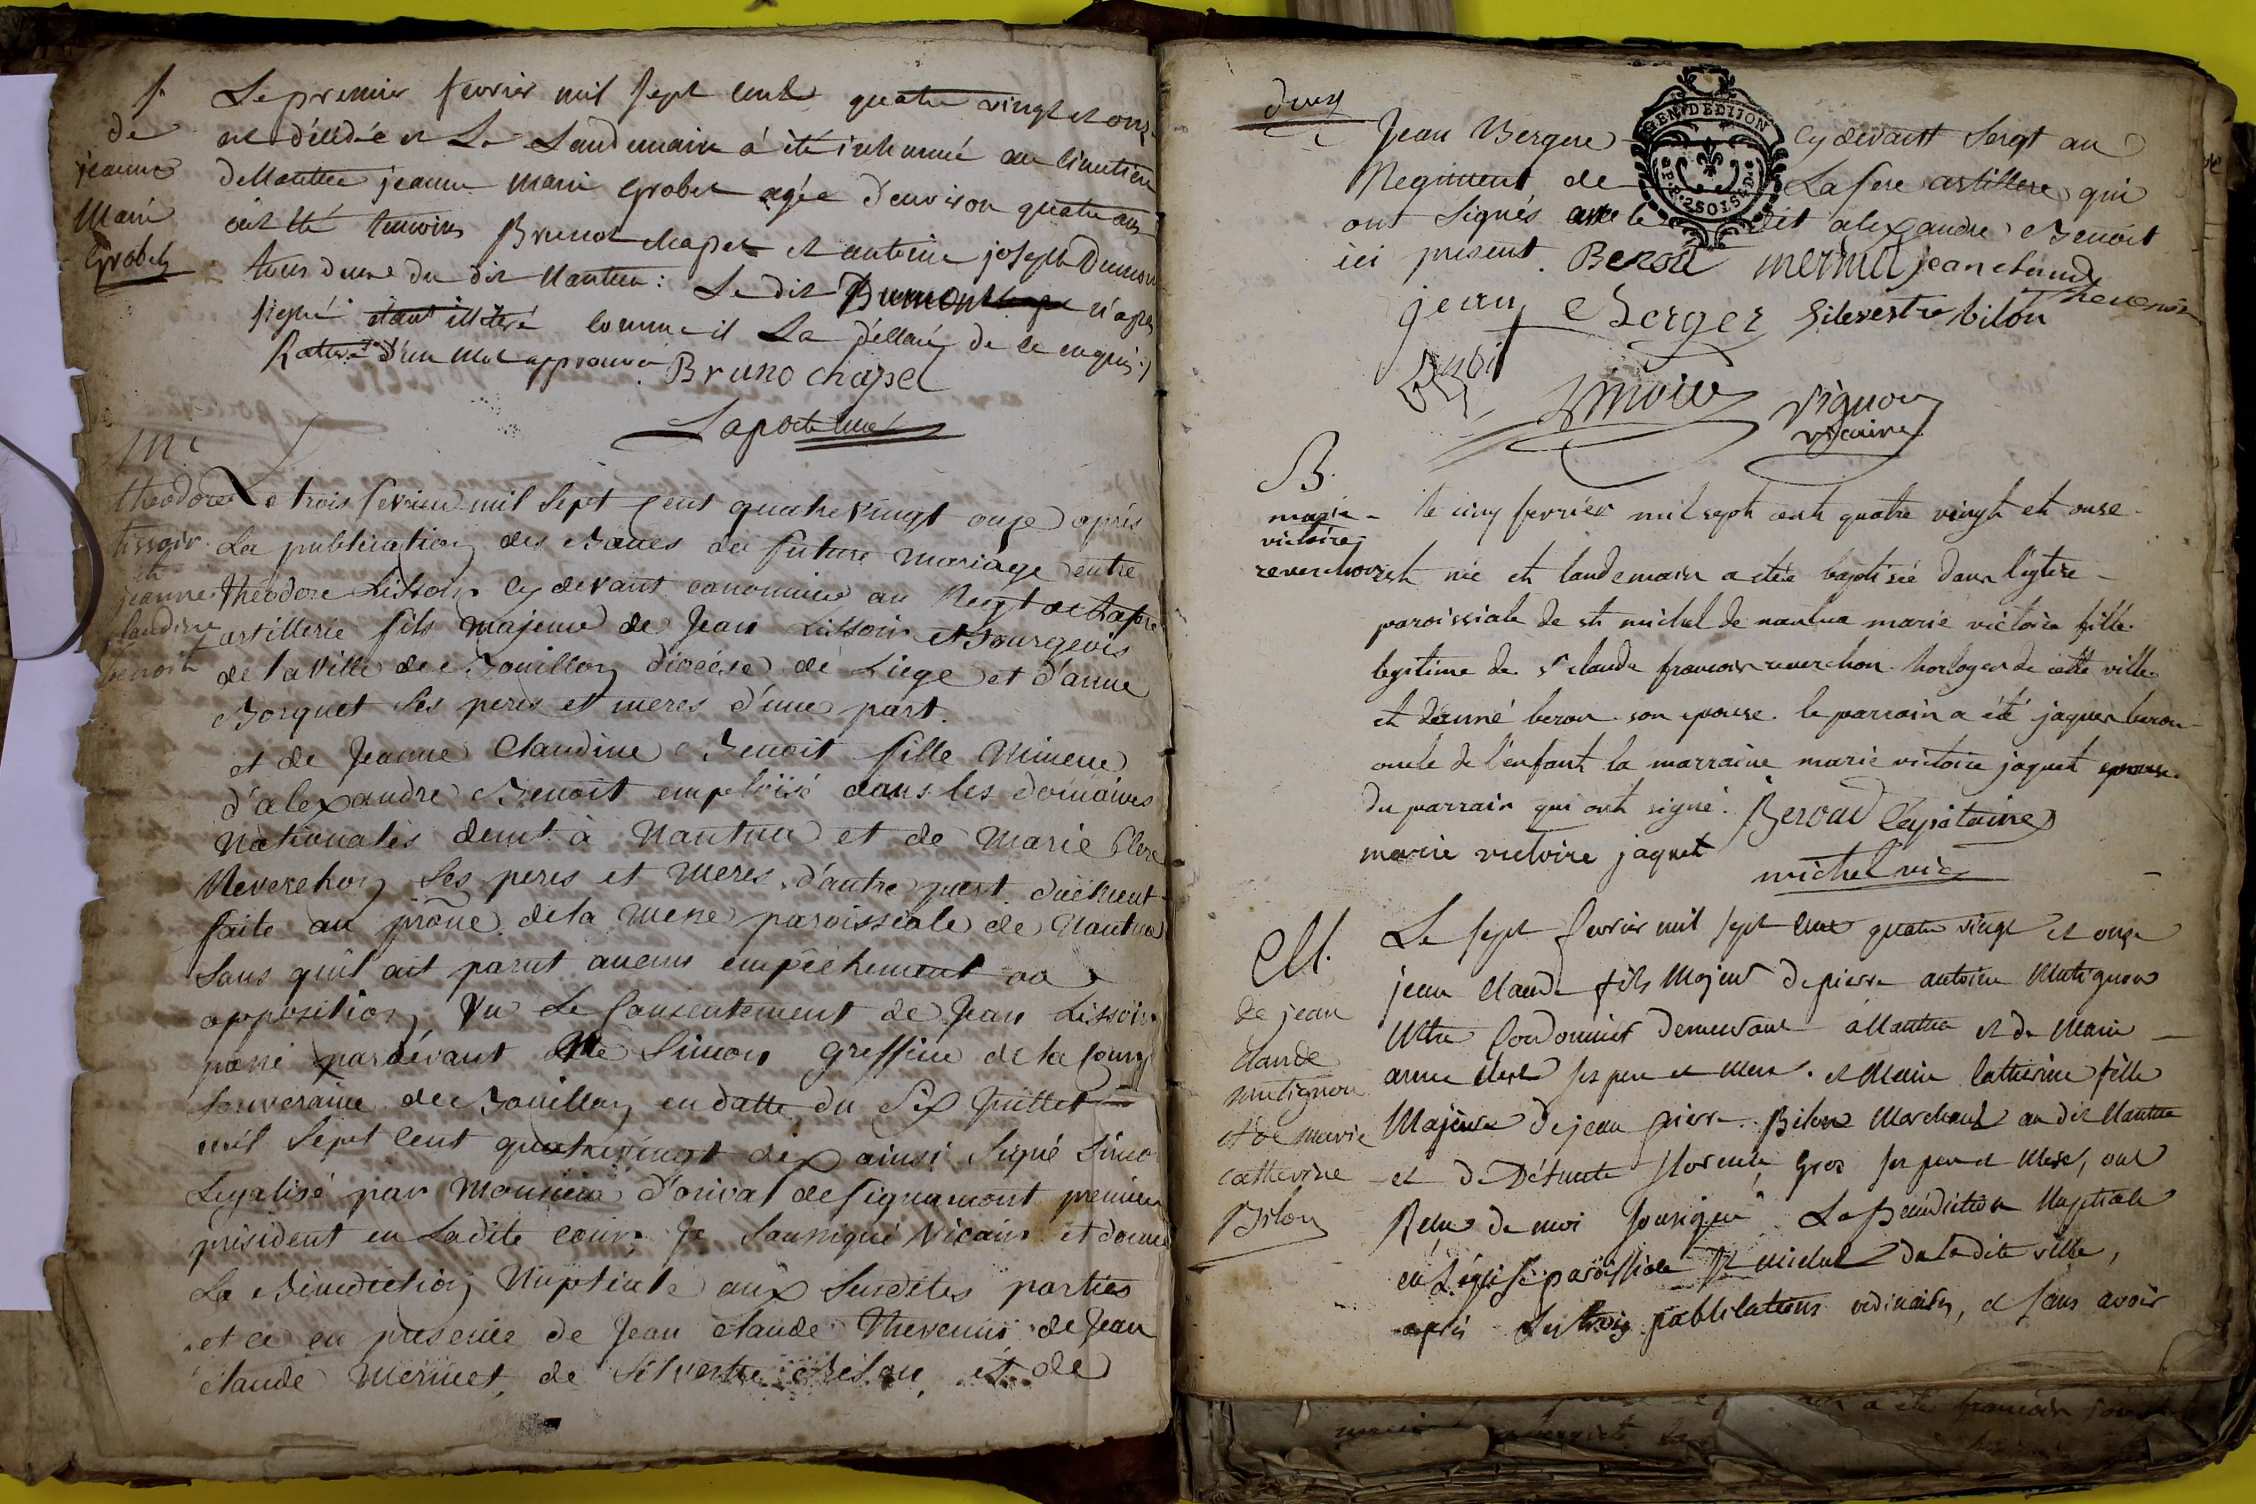 S.
de
jeanne
Marie
Grobet
Le premier fevrier mil sept cent quatre vingt et onze
est décédée et Le Landemain à été inhumée au cimetiere
de Nantua jeanne Marie Grobet agée d'environ quatre ans
ont été temoins Bruno chapel et antoine joseph Dumont
tous deux du dit Nantua : Le dit Dumont n'a pas
signé étant illiteré comme il La déllaré de ce enquis ./.
Rature d'un Mot approuvé. Bruno chapel
Laporte curé
M.
theodore
Lissoir
et
jeanne
claudine
benoit
Le trois fevrier mil Sept Cent quatrevingt onze après
La publication des Bancs du futur mariage entre
Théodore Lissoir cy devant canonnier au Regt de Lafere
artillerie fils majeur de Jean Lissoir et Bourgeois
de la ville de Bouillon diocése de Liege et d'anne
Borquet Ses peres et meres d'une part.
et de Jeanne Claudine Benoit fille Mineure
d'alexandre Benoit emploïé dans les domaines
Nationales demt. à Nantua et de Marie Clere
Reverchon Ses peres et Meres d'autre part duement
faite au prône de la Messe paroissiale de Nantua
Sans quil ait parut aucuns empêchement ou
opposition, Vu Le Consentement de Jean Lissoir
passé pardevant Me Simon Greffier de la Cour
Souveraine de Bouillon en datte du Six Juillet
mil Sept Cent quatrevingt dix ainsi Signé Simon
Legalisé par Monsieur d'orival de fignamont premier
président en Ladite cour, Je Soussigné Vicaire et donné
La Bénédiction Nuptiale aux Susdites parties
et ce en presence de Jean claude Thevenin de Jean
claude Mermet, de Silvestre Bilon, et de
deux
Jean Bergere cy devant Sergt au
Regiment de La fere artillere qui
ont Signés avec le dit alexandre Benoit
ici present. Benoit mermet jean claude
jean Berger Silvestre bilon Thevenin
Simoin Vignon
vicaire
B.
marie
victoire
reverchon
le cinq fevrier mil sept cent quatre vingt et onse
est née et landemain a étée baptisée dans l'eglise
paroissiale de st michel de nantua marie victoire fille
legitime de sr claude francois reverchon horloger de cette ville
et d'anné beroud son epouse. le parrain a été jaques beroud
oncle de l'enfant la marraine marie victoire jaquet epouse
du parrain qui ont signé. Beroud Capitaine
marie victoire jaquet
michel vic
M.
de jean
claude
mutignon
et de marie
catherine
Bilon
Le sept fevrier mil sept cent quatre vingt et onze
jean claude fils Majeur de pierre antoine Mutignon
Mtre Cordonnier demeurant à Nantua et de Marie
anne clerc ses pere et Mere. et Marie Catherine fille
Majeure de jean pierre Bilon Marchand au dit Nantua
et de Défunte florence Gros ses pere et Mere, ont
Reçu de moi soussigné La Bénédiction Nuptiale
en L'église paroissiale St michel de la dite ville,
après Les trois publications ordinaires, et sans avoir